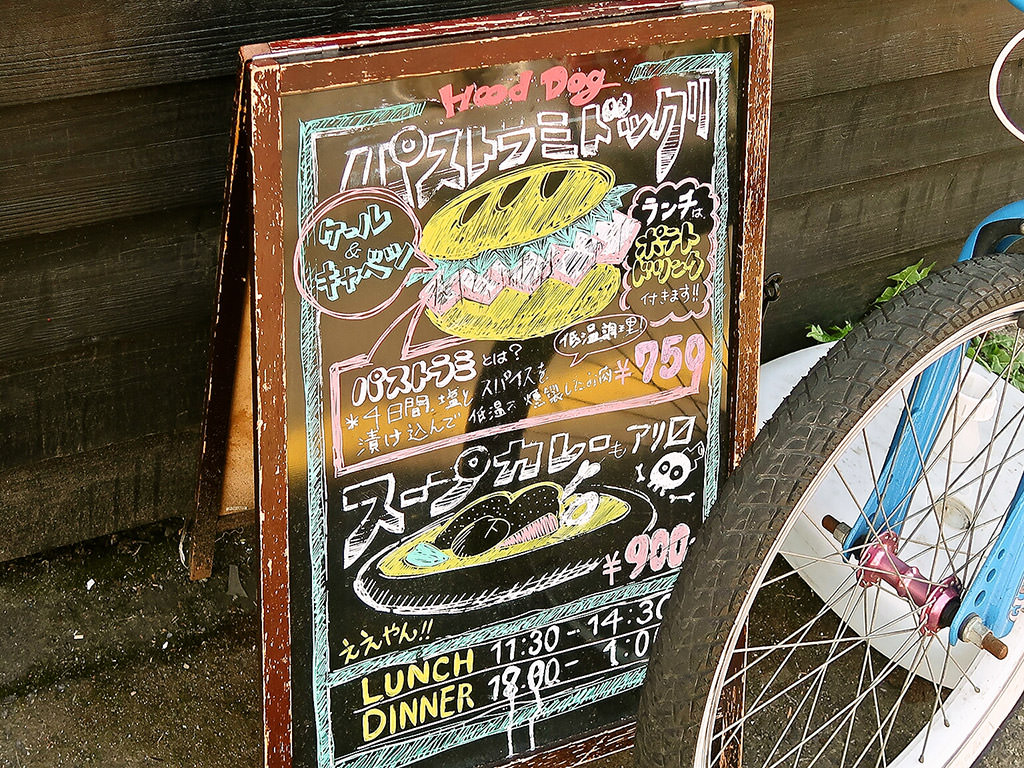 Hood Dog
パストラミドッグ!
ケール
&
キャベツ
ランチは、
ポテト
ドリンク
付きます!!
低温調理!
パストラミとは?
¥759
*4日間、塩とスパイスを
漬け込んで低温で燻製したお肉
スープカレーもアリ〼
¥900-
ええやん!!
LUNCH 11:30-14:30
DINNER 18:00-1:00